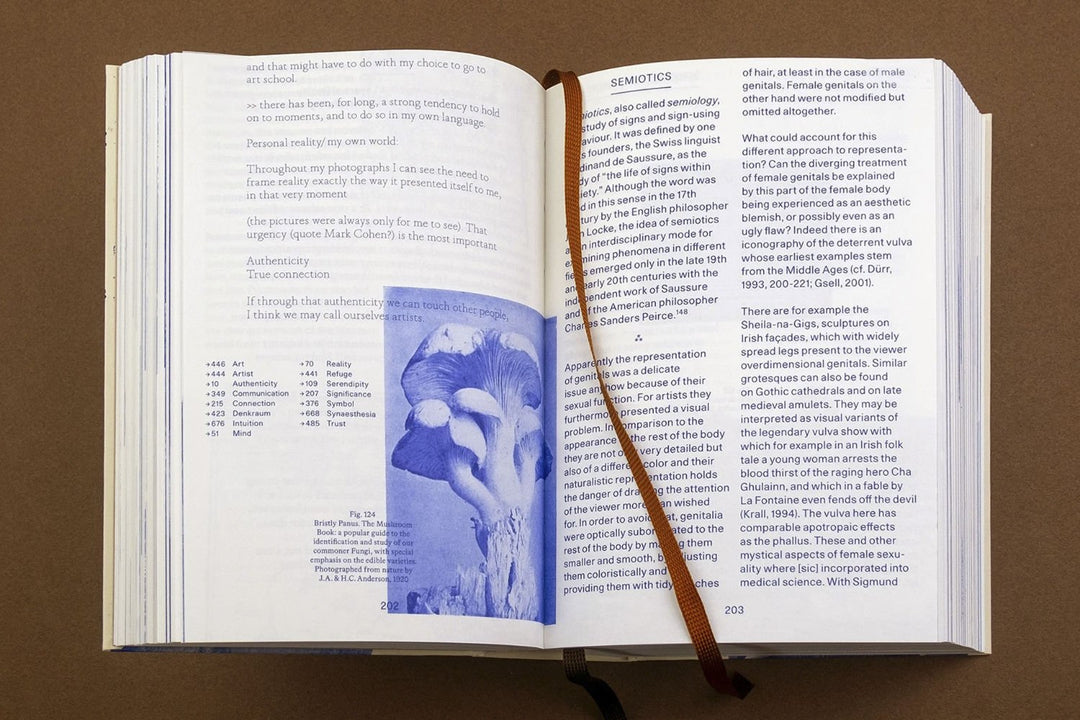 and that might have to do with my choice to go to
art school.
>> there has been, for long, a strong tendency to hold
on to moments, and to do so in my own language.
Personal reality/ my own world:
Throughout my photographs I can see the need to
frame reality exactly the way it presented itself to me,
in that very moment
(the pictures were always only for me to see). That
urgency (quote Mark Cohen?) is the most important
Authenticity
True connection
If through that authenticity we can touch other people,
I think we may call ourselves artists.
→446 Art
→444 Artist
→10 Authenticity
→349 Communication
→215 Connection
→423 Denkraum
→676 Intuition
→51 Mind
→70 Reality
→441 Refuge
→109 Serendipity
→207 Significance
→376 Symbol
→668 Synaesthesia
→485 Trust
Fig. 124
Bristly Panus. The Mushroom
Book: a popular guide to the
identification and study of our
commoner Fungi, with special
emphasis on the edible varieties.
Photographed from nature by
J.A. & H.C. Anderson, 1920
202
SEMIOTICS
also called semiology,
study of signs and sign-using
It was defined by one
founders, the Swiss linguist
de Saussure, as the
of “the life of signs within
Although the word was
in this sense in the 17th
by the English philosopher
Locke, the idea of semiotics
interdisciplinary mode for
phenomena in different
emerged only in the late 19th
early 20th centuries with the
work of Saussure
of the American philosopher
Sanders Peirce.148
Apparently the representation
of genitals was a delicate
issue because of their
sexual For artists they
presented a visual
problem. In comparison to the
appearance the rest of the body
they are not very detailed but
also of a color and their
naturalistic holds
the danger of the attention
of the viewer more wished
for. In order to genitalia
were optically to the
rest of the body by them
smaller and smooth, by
them coloristically and
providing them with
of hair, at least in the case of male
genitals. Female genitals on the
other hand were not modified but
omitted altogether.
What could account for this
different approach to representa-
tion? Can the diverging treatment
of female genitals be explained
by this part of the female body
being experienced as an aesthetic
blemish, or possibly even as an
ugly flaw? Indeed there is an
iconography of the deterrent vulva
whose earliest examples stem
from the Middle Ages (cf. Dürr,
1993, 200-221; Gsell, 2001).
There are for example the
Sheila-na-Gigs, sculptures on
Irish façades, which with widely
spread legs present to the viewer
overdimensional genitals. Similar
grotesques can also be found
on Gothic cathedrals and on late
medieval amulets. They may be
interpreted as visual variants of
the legendary vulva show with
which for example in an Irish folk
tale a young woman arrests the
blood thirst of the raging hero Cha
Ghulainn, and which in a fable by
La Fontaine even fends off the devil
(Krall, 1994). The vulva here has
comparable apotropaic effects
as the phallus. These and other
mystical aspects of female sexu-
ality where [sic] incorporated into
medical science. With Sigmund
203